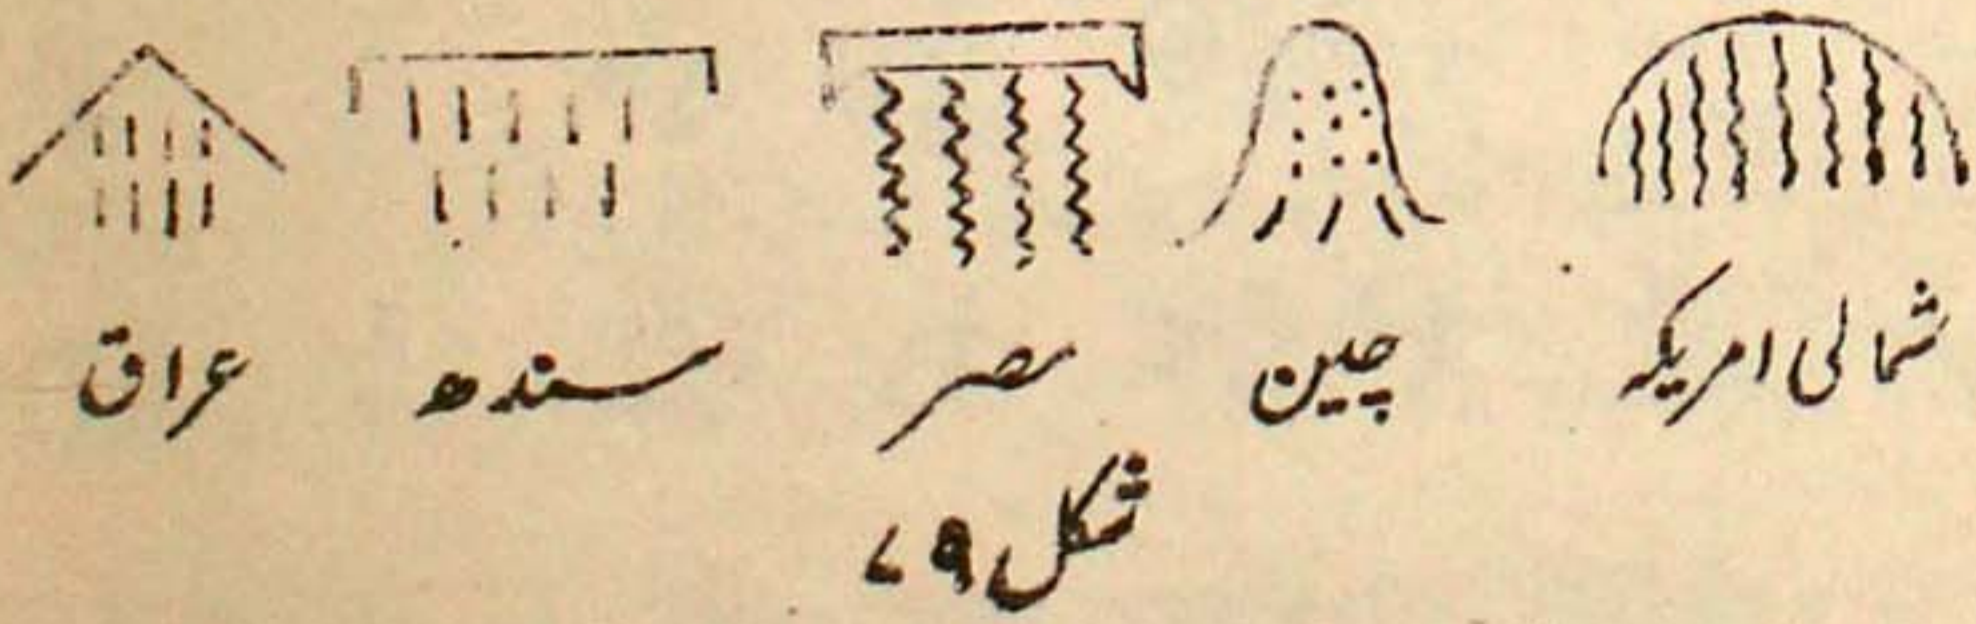 شمالی امریکہ چین مصر سندھ عراق
شکل ۷۹